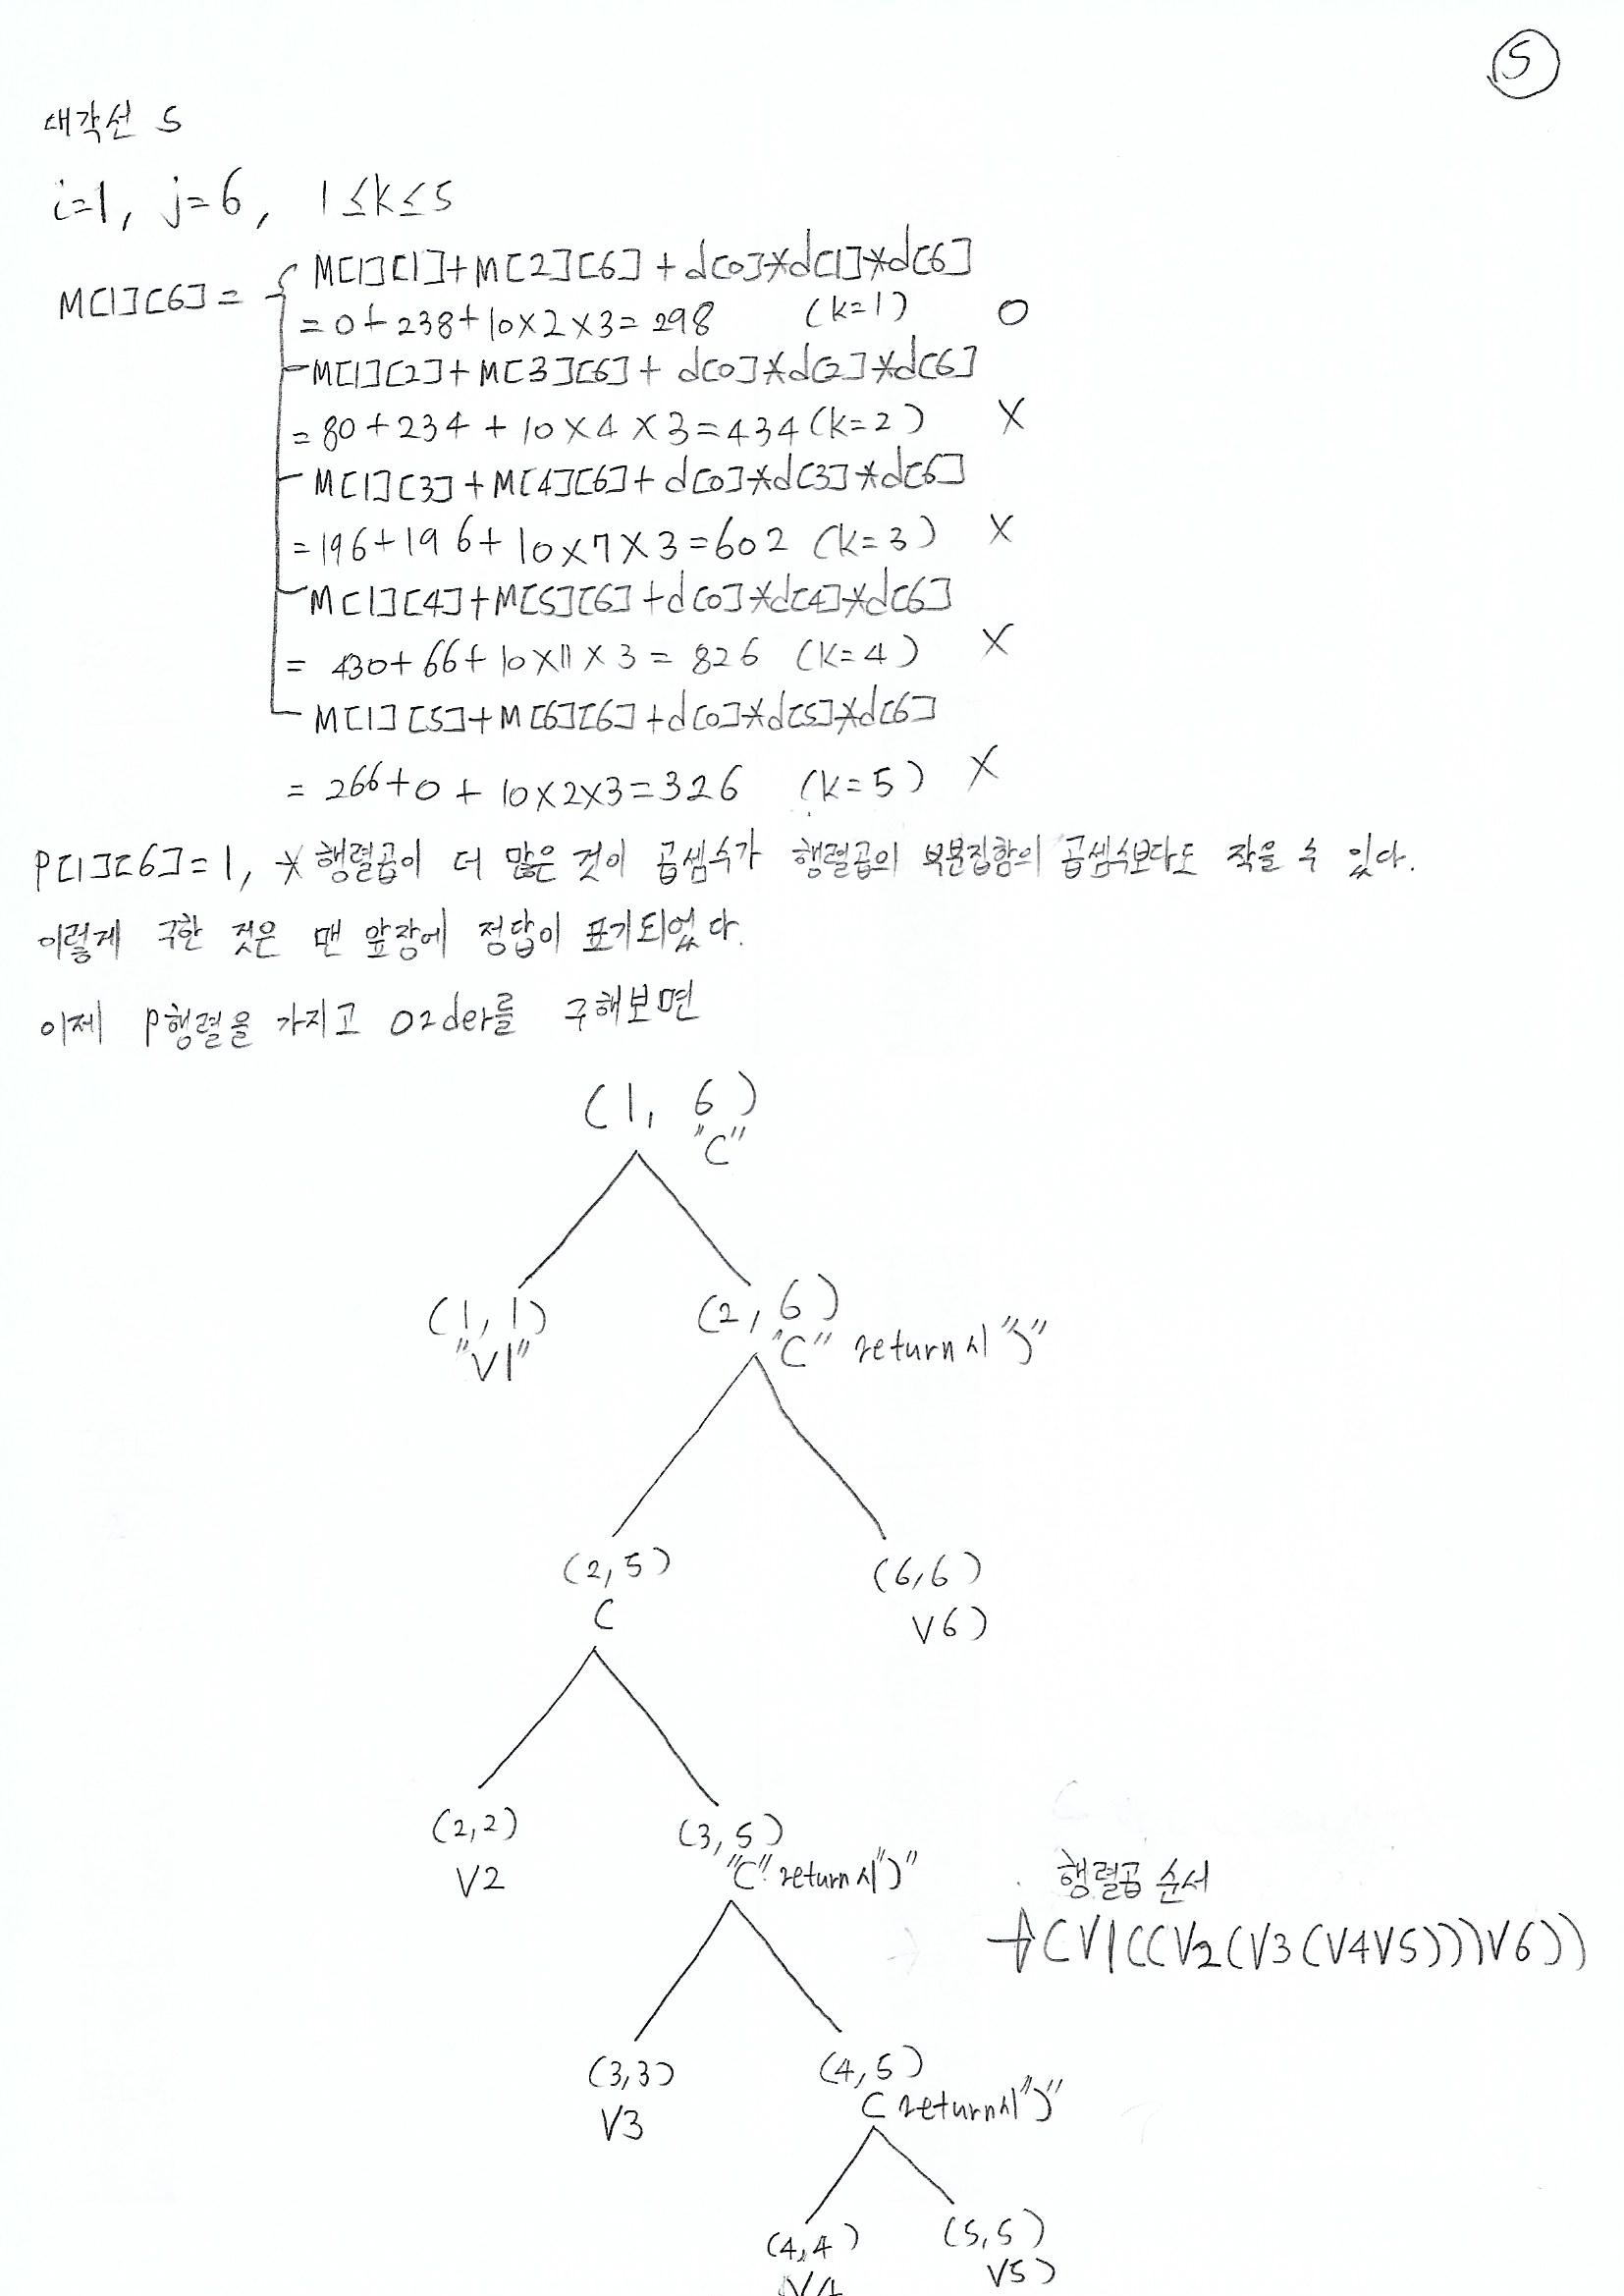 ⑤
대각선 5
i=1, j=6, 1≤k≤5
M[1][6] = { M[1][1]+M[2][6]+d[0]*d[1]*d[6]
=0+238+10×2×3=298 (k=1) O
M[1][2]+M[3][6]+d[0]*d[2]*d[6]
=80+234+10×4×3=434 (k=2) X
M[1][3]+M[4][6]+d[0]*d[3]*d[6]
=196+196+10×7×3=602 (k=3) X
M[1][4]+M[5][6]+d[0]*d[4]*d[6]
= 430+66+10×11×3=826 (k=4) X
M[1][5]+M[6][6]+d[0]*d[5]*d[6]
= 266+0+10×2×3=326 (k=5) X
P[1][6]=1, * 행렬곱이 더 많은 것이 곱셈수가 행렬곱의 부분집합의 곱셈수보다도 작을 수 있다.
이렇게 구한 것은 맨 앞장에 정답이 표기되었다.
이제 P행렬을 가지고 order를 구해보면
(1, 6)
"("
(1, 1) (2, 6)
"V1" "(" return시 ")"
(2, 5) (6, 6)
( V6)
(2,2) (3,5)
V2 "(" return시 ")"
행렬곱 순서
→(V1((V2(V3(V4V5)))V6))
(3,3) (4,5)
V3 ( return시 ")"
(4,4) (5,5)
V4 V5)